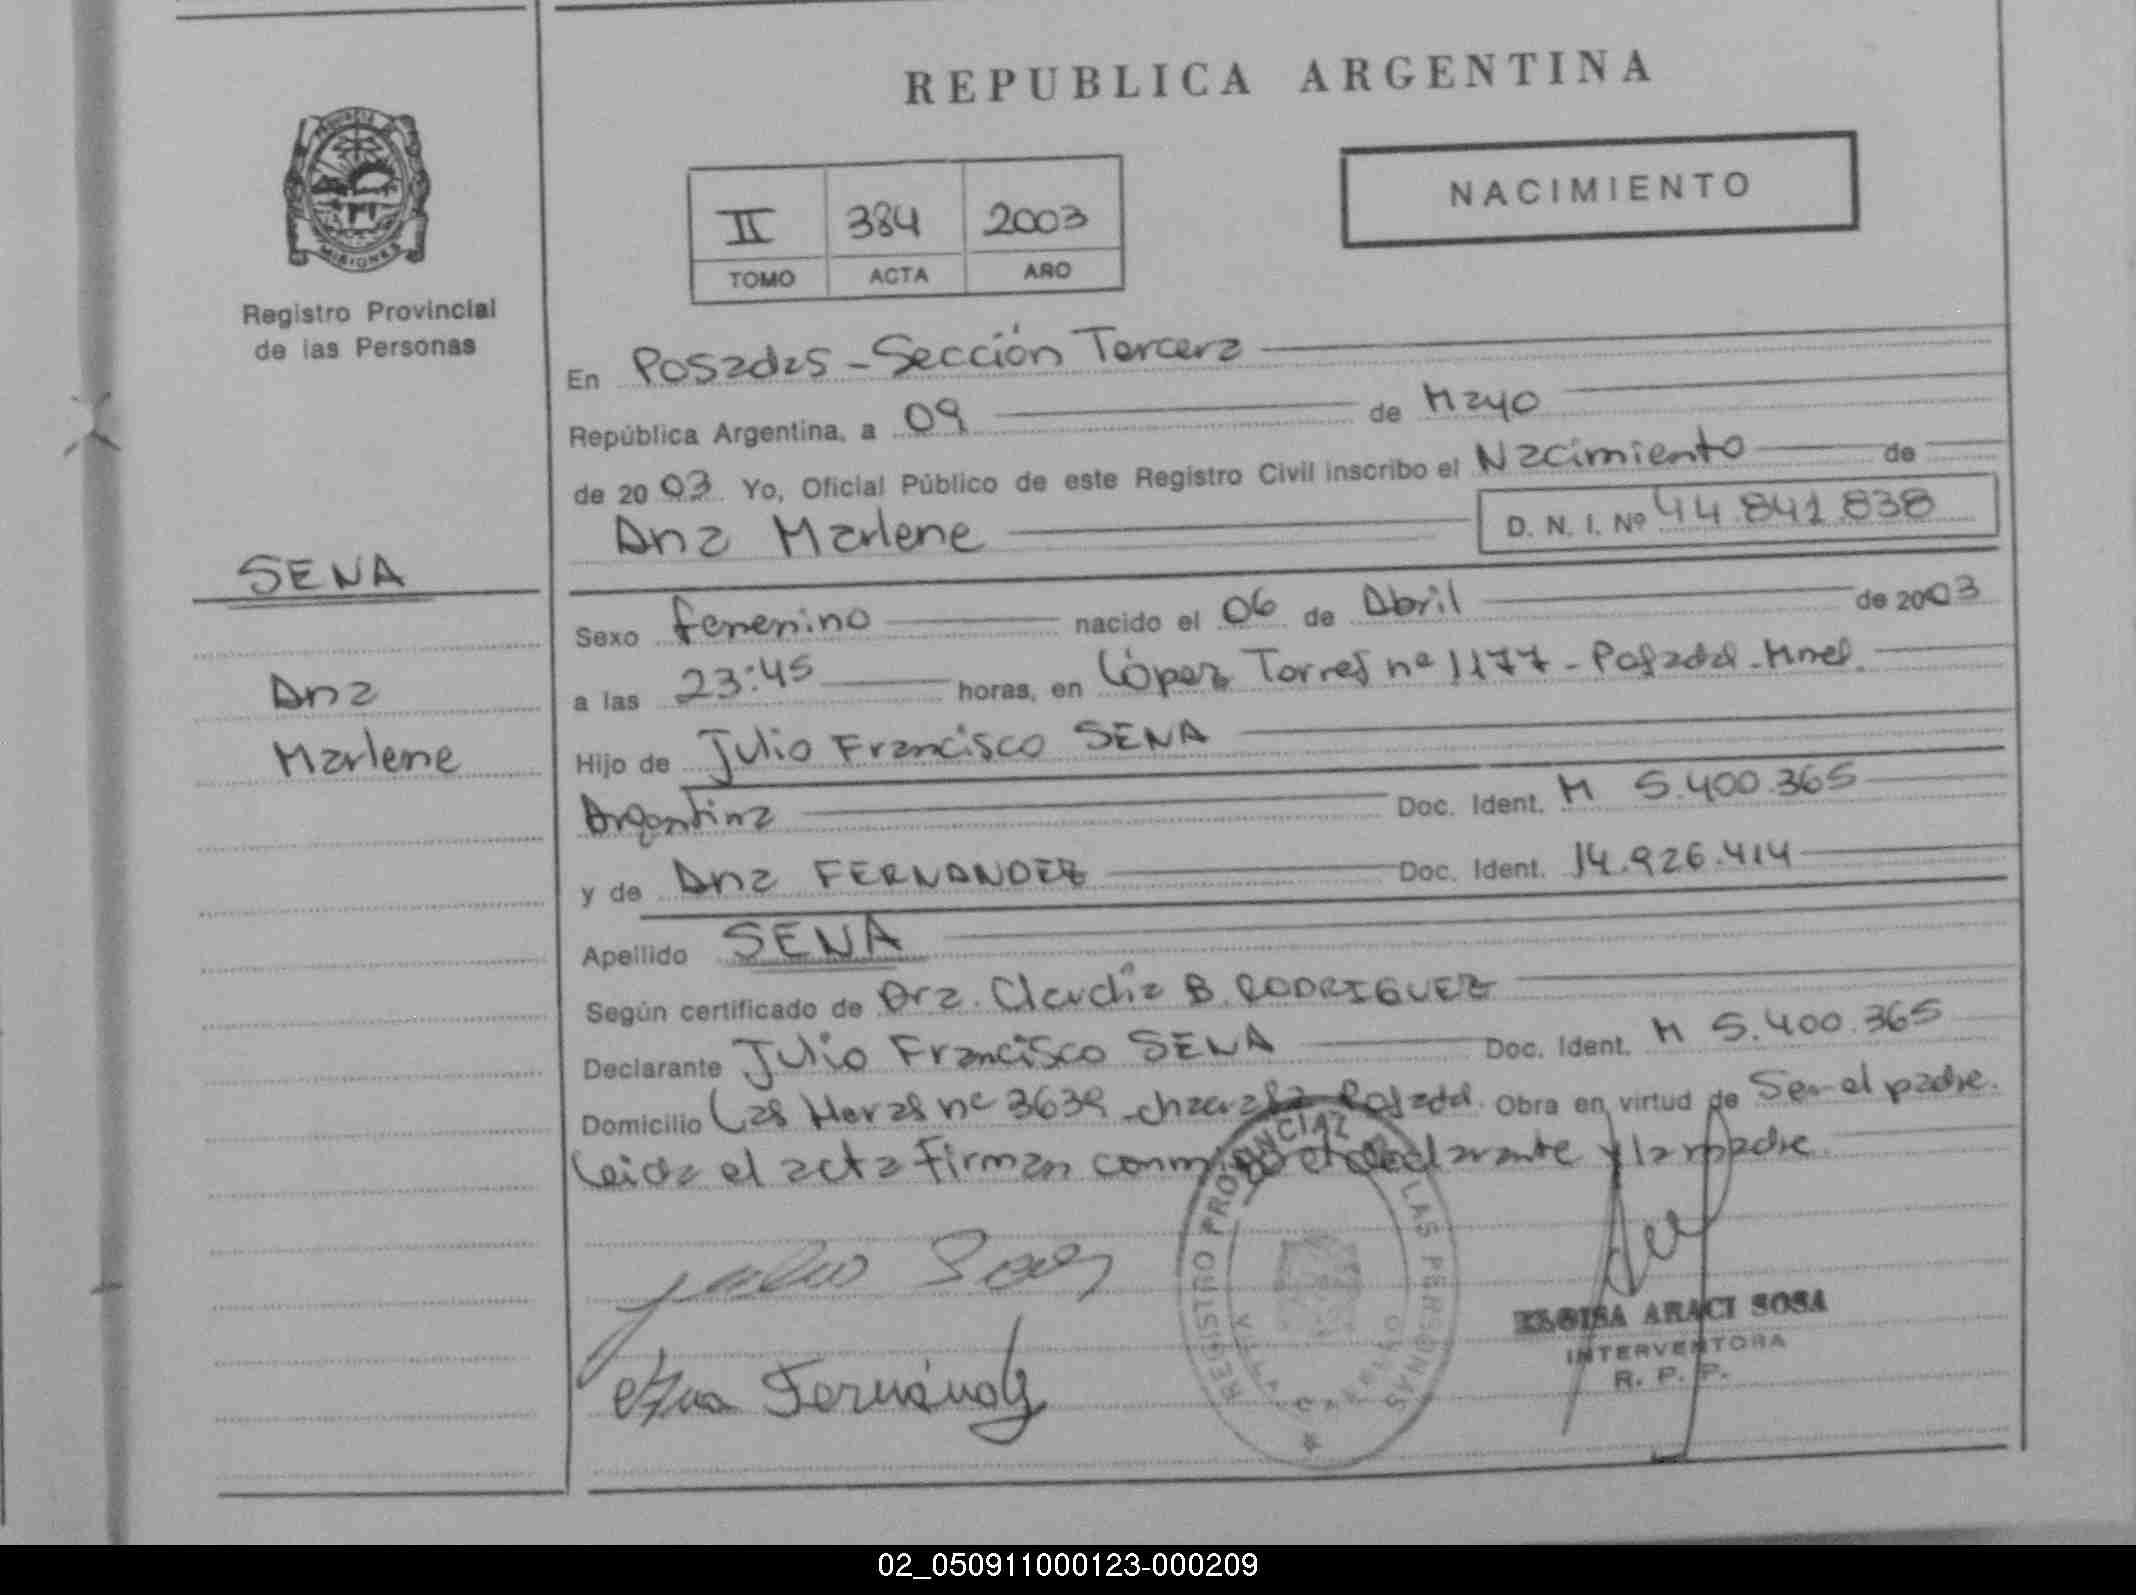 REPUBLICA ARGENTINA
NACIMIENTO
II 384 2003
TOMO ACTA AÑO
PROVINCIA DE
MISIONES
Registro Provincial
de las Personas
En Posadas - Sección Tercera
República Argentina, a 09 de Mayo
de 2003 Yo, Oficial Público de este Registro Civil inscribo el Nacimiento de
Ana Marlene D. N. I. Nº 44.841.838
SENA
Ana
Marlene
Sexo femenino nacido el 06 de Abril de 2003
a las 23:45 horas, en López Torres nº 1177 - Posadas - Mnes.
Hijo de Julio Francisco SENA
Argentina Doc. Ident. M 5.400.365
y de Ana FERNANDEZ Doc. Ident. 14.926.414
Apellido SENA
Según certificado de Dra. Claudia B. RODRIGUEZ
Declarante Julio Francisco SENA Doc. Ident. M 5.400.365
Domicilio Las Heras nº 3639 Posadas. Obra en virtud de Ser el padre.
Leida el acta Firman conmigo el declarante y la madre.
REGISTRO PROVINCIAL LAS PERSONAS
Ana Fernández
ELOISA ARACI SOSA
INTERVENTORA
R. P. P.
02_050911000123-000209